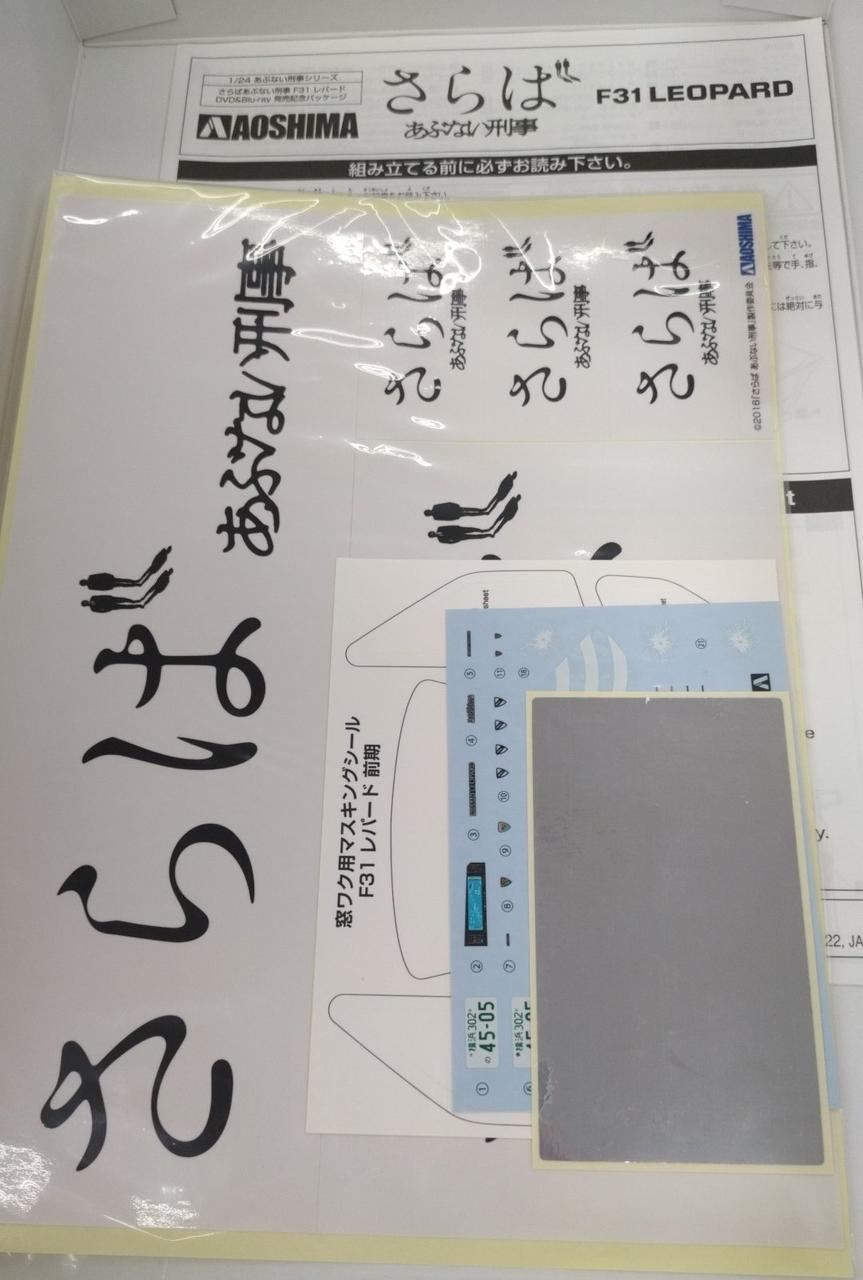 1/24 あぶない刑事シリーズ
さらばあぶない刑事 F31 レパード
DVD&Blu-ray 発売記念パッケージ
AOSHIMA
さらば
あぶない刑事
F31 LEOPARD
組み立てる前に必ずお読み下さい。
して下さい。
等で手、指、
には絶対に与
さらば
あぶない刑事
さらば
あぶない刑事
さらば
あぶない刑事
AOSHIMA
©2016「さらば あぶない刑事」製作委員会
さらば
あぶない刑事
t
e
y.
22, JA
窓ワク用マスキングシール
F31 レパード 前期
sheet
sheet
①
横浜 302
の 45-05
②
③
④
⑤
⑥
横浜 302
⑦
⑧
⑨
⑩
⑪
⑱
㉑